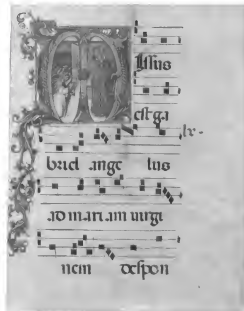 Missus
est ga
briel ange lus
ad mariam virgi
nem despon